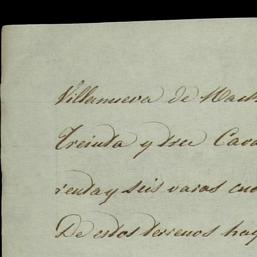 Villanueva de
Treinta y tres
renta y seis varas
De estos terrenos hay